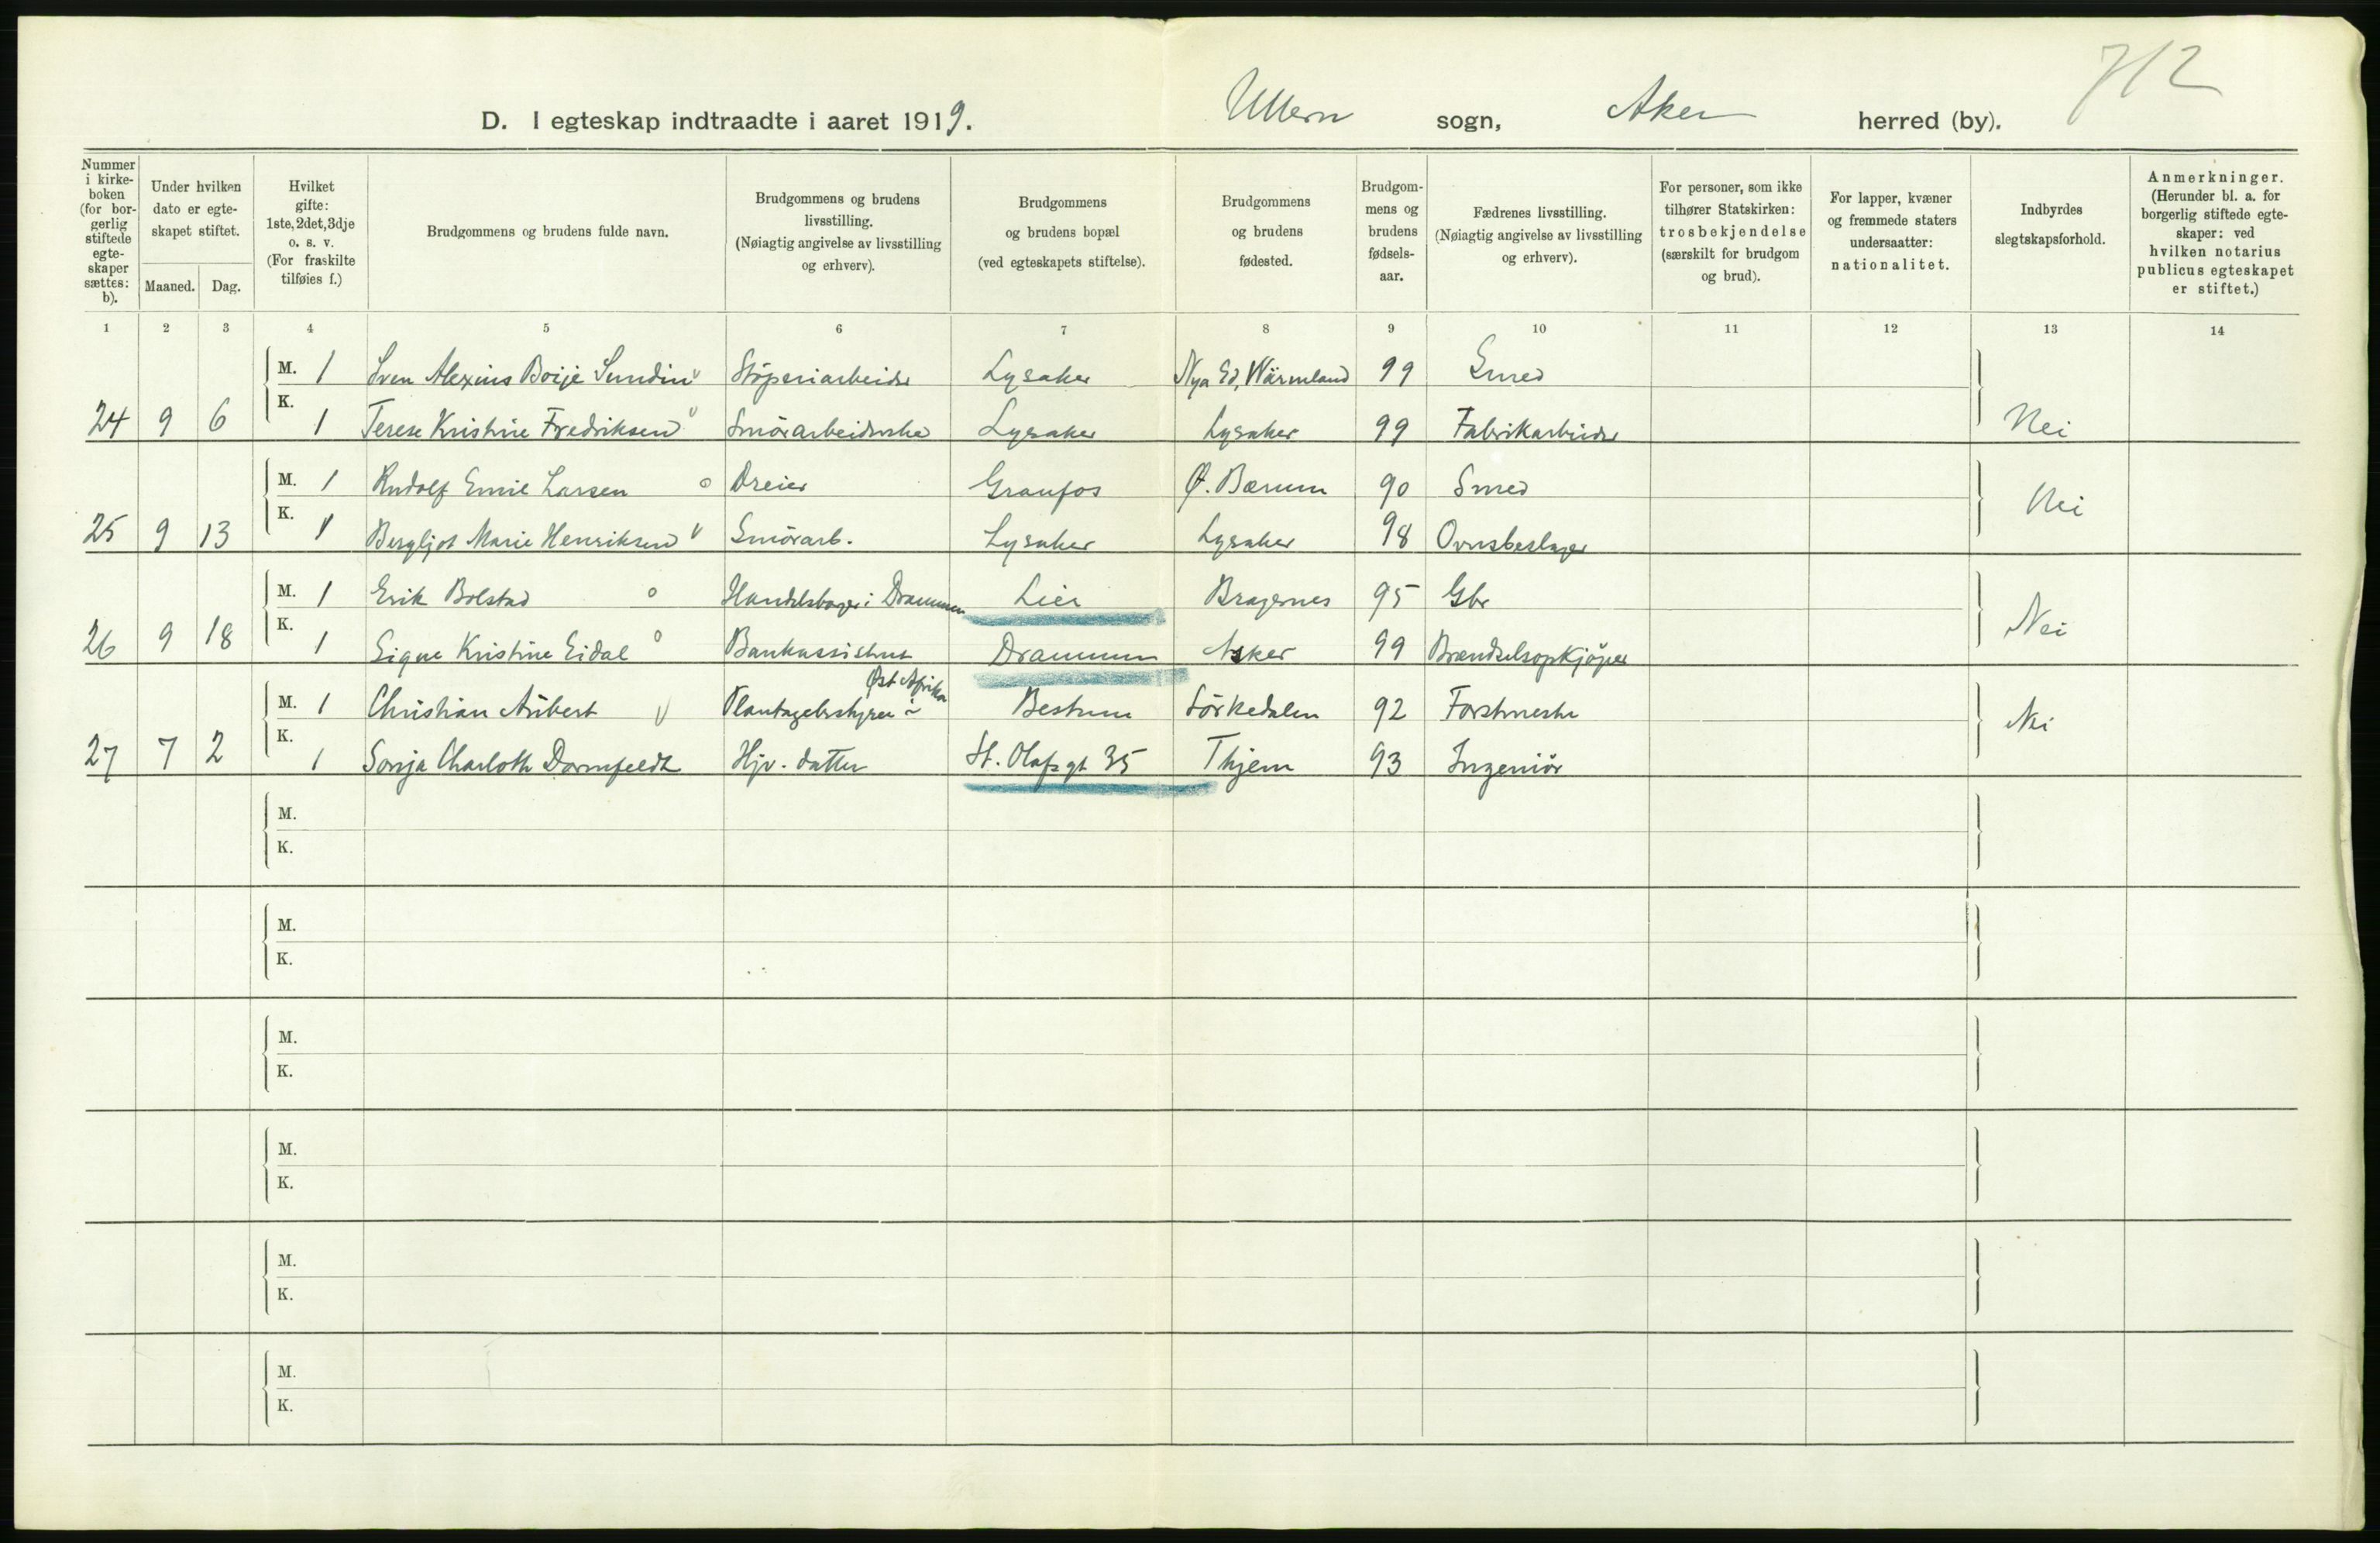 712
D. I egteskap indtraadte i aaret 1919. Ullern sogn, Aker herred (by).
Nummer i kirkeboken (for borgerlig stiftede egteskaper sættes: b).
Under hvilken dato er egteskapet stiftet.
Maaned. Dag.
Hvilket gifte: 1ste, 2det, 3dje o. s. v. (For fraskilte tilføies f.)
Brudgommens og brudens fulde navn.
Brudgommens og brudens livsstilling. (Nøiagtig angivelse av livsstilling og erhverv).
Brudgommens og brudens bopæl (ved egteskapets stiftelse).
Brudgommens og brudens fødested.
Brudgommens og brudens fødselsaar.
Fædrenes livsstilling. (Nøiagtig angivelse av livsstilling og erhverv).
For personer, som ikke tilhører Statskirken: trosbekjendelse (særskilt for brudgom og brud).
For lapper, kvæner og fremmede staters undersaatter: nationalitet.
Indbyrdes slegtskapsforhold.
Anmerkninger. (Herunder bl. a. for borgerlig stiftede egteskaper: ved hvilken notarius publicus egteskapet er stiftet.)
1 2 3 4 5 6 7 8 9 10 11 12 13 14
M. 1 Sven Alexius Boije Sundin Støperiarbeider Lysaker Nya Ed, Wärmland 99 Smed
24 9 6 K. 1 Terese Kristine Fredriksen Smörarbeiderske Lysaker Lysaker 99 Fabrikarbeider Nei
M. 1 Rudolf Emil Larsen Dreier Granfos Ø. Bærum 90 Smed Nei
25 9 13 K. 1 Bergljot Marie Henriksen Smörarb. Lysaker Lysaker 98 Ovnsbeslager
M. 1 Erik Bolstad i Drammen Lier Bragernes 95 Gbr Nei
26 9 18 K. 1 Signe Kristine Eidal Bankassistent Drammen Asker 99 Brændselsopkjøper
M. 1 Christian Aubert Plantagebestyrer i Øst Afrika Bestum Sörkedalen 92 Forstmester Nei
27 7 2 K. 1 Sonja Charloth Dornfeldt Hjv. datter St. Olafsgt 35 Thjem 93 Ingeniör
M.
K.
M.
K.
M.
K.
M.
K.
M.
K.
M.
K.